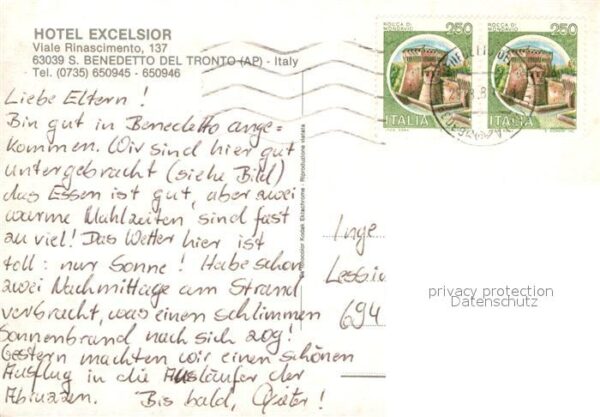 HOTEL EXCELSIOR
Viale Rinascimento, 137
63039 S. BENEDETTO DEL TRONTO (AP) - Italy
Tel. (0735) 650945 - 650946
250
250
ROCCA DI
MONDAVIO
ITALIA
ITALIA
Liebe Eltern!
Bin gut in Benedetto ange=
kommen. Wir sind hier gut
untergebracht (siehe Bild)
das Essen ist gut, aber zwei
warme Mahlzeiten sind fast
zu viel! Das Wetter hier ist
toll: nur Sonne! Habe schon
zwei Nachmittage am Strand
verbracht, was einen schlimmen
Sonnenbrand nach sich zog!
Gestern machten wir einen schönen
Ausflug in die Ausläufer der
Abruzzen. Bis bald,
Kodak Ektachrome - Riproduzione vietata
Inge
Lessin
694
privacy protection
Datenschutz